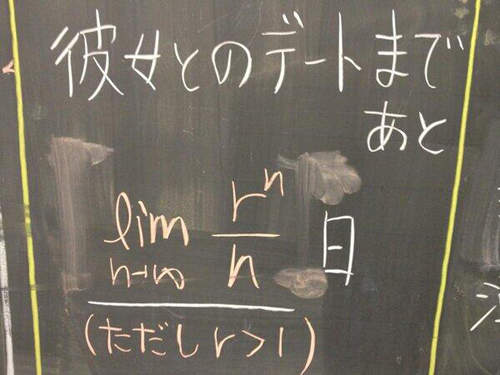 彼女とのデートまで
あと
lim n→∞ r^n/n 日
(ただし r>1)